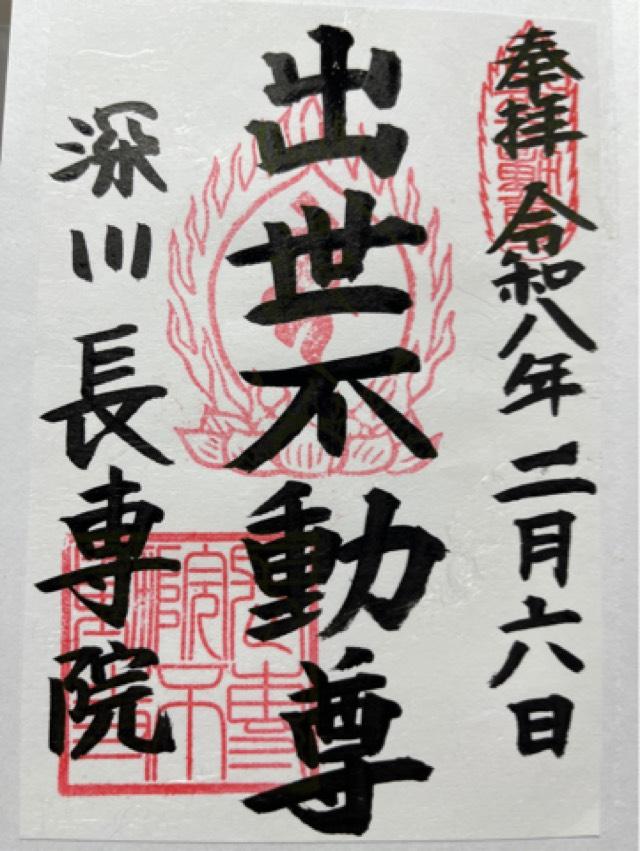 奉拝 令和八年二月六日
出世不動尊
深川 長専院